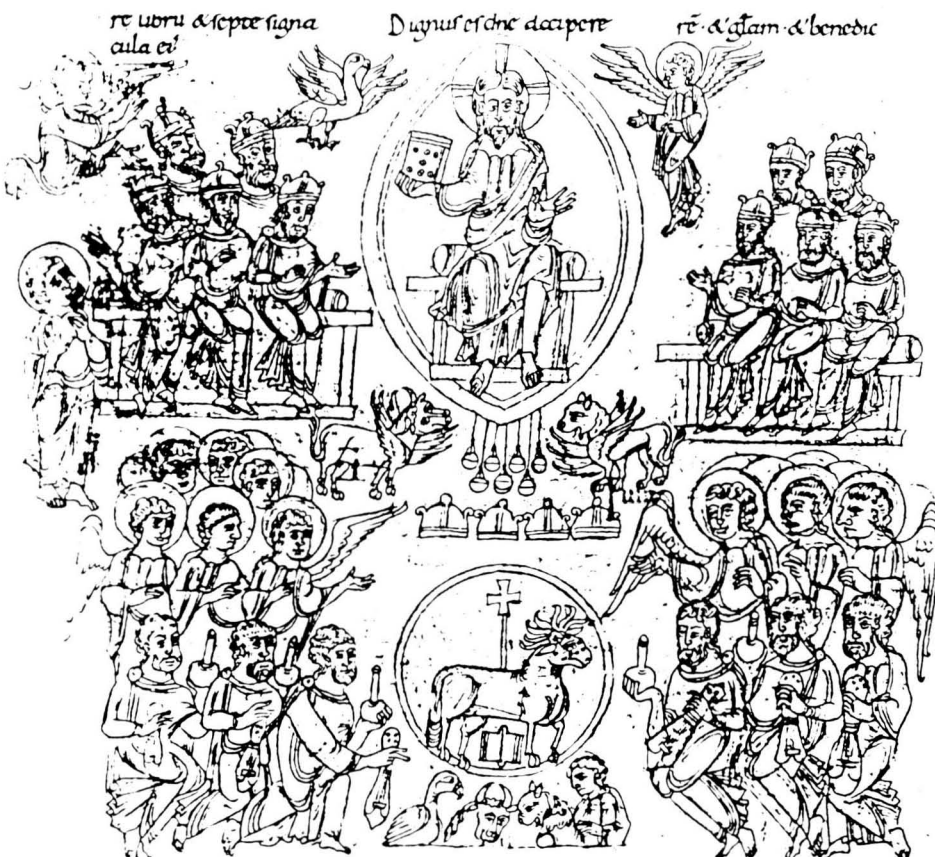 re librū & septē signa
cula ei'
Dignus es dn̄e accipere
rē · & gl̄am · & benedic